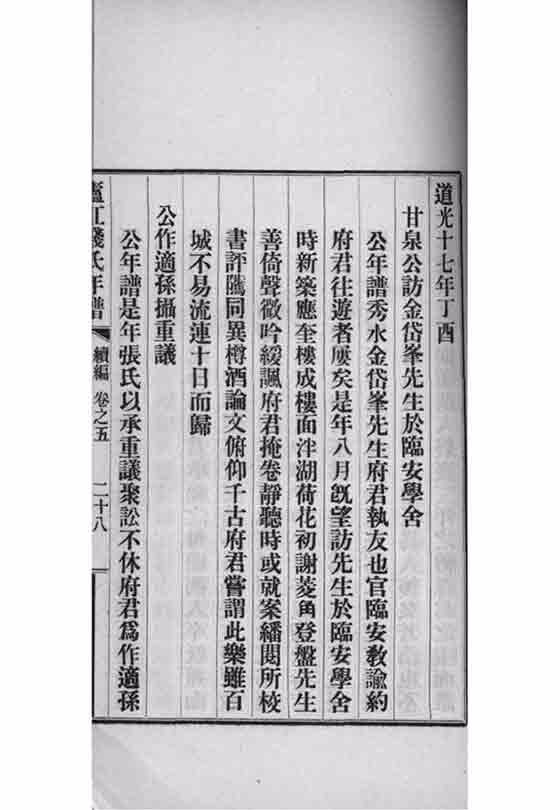 道光十七年丁酉
甘泉公訪金岱峯先生於臨安學舍
公年譜秀水金岱峯先生府君執友也官臨安敎諭約
府君往遊者屢矣是年八月旣望訪先生於臨安學舍
時新築應奎樓成樓面泮湖荷花初謝菱角登盤先生
善倚聲微吟緩諷府君掩卷靜聽時或就案繙閱所校
書評騭同異樽酒論文俯仰千古府君嘗謂此樂雖百
城不易流連十日而歸
公作適孫攝重議
公年譜是年張氏以承重議聚訟不休府君爲作適孫
廬江錢氏年譜 續編 卷之五 二十八